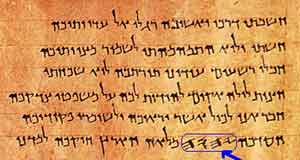 חשבתי דרכי ואשיבה רגלי אל עדוותיכה
חשתי ולוא התמהמהתי לשמור מצוותיכה
חבלי רשעים עודוני תורתכה לוא שכחתי
חצות לילה להודות לכה על משפטי צדקכה
חבר אני לכול אשר יראוכה ולשומרי פקודיכה
חסדכה 𐤉𐤄𐤅𐤄 מלאה הארץ חוקיכה למדני